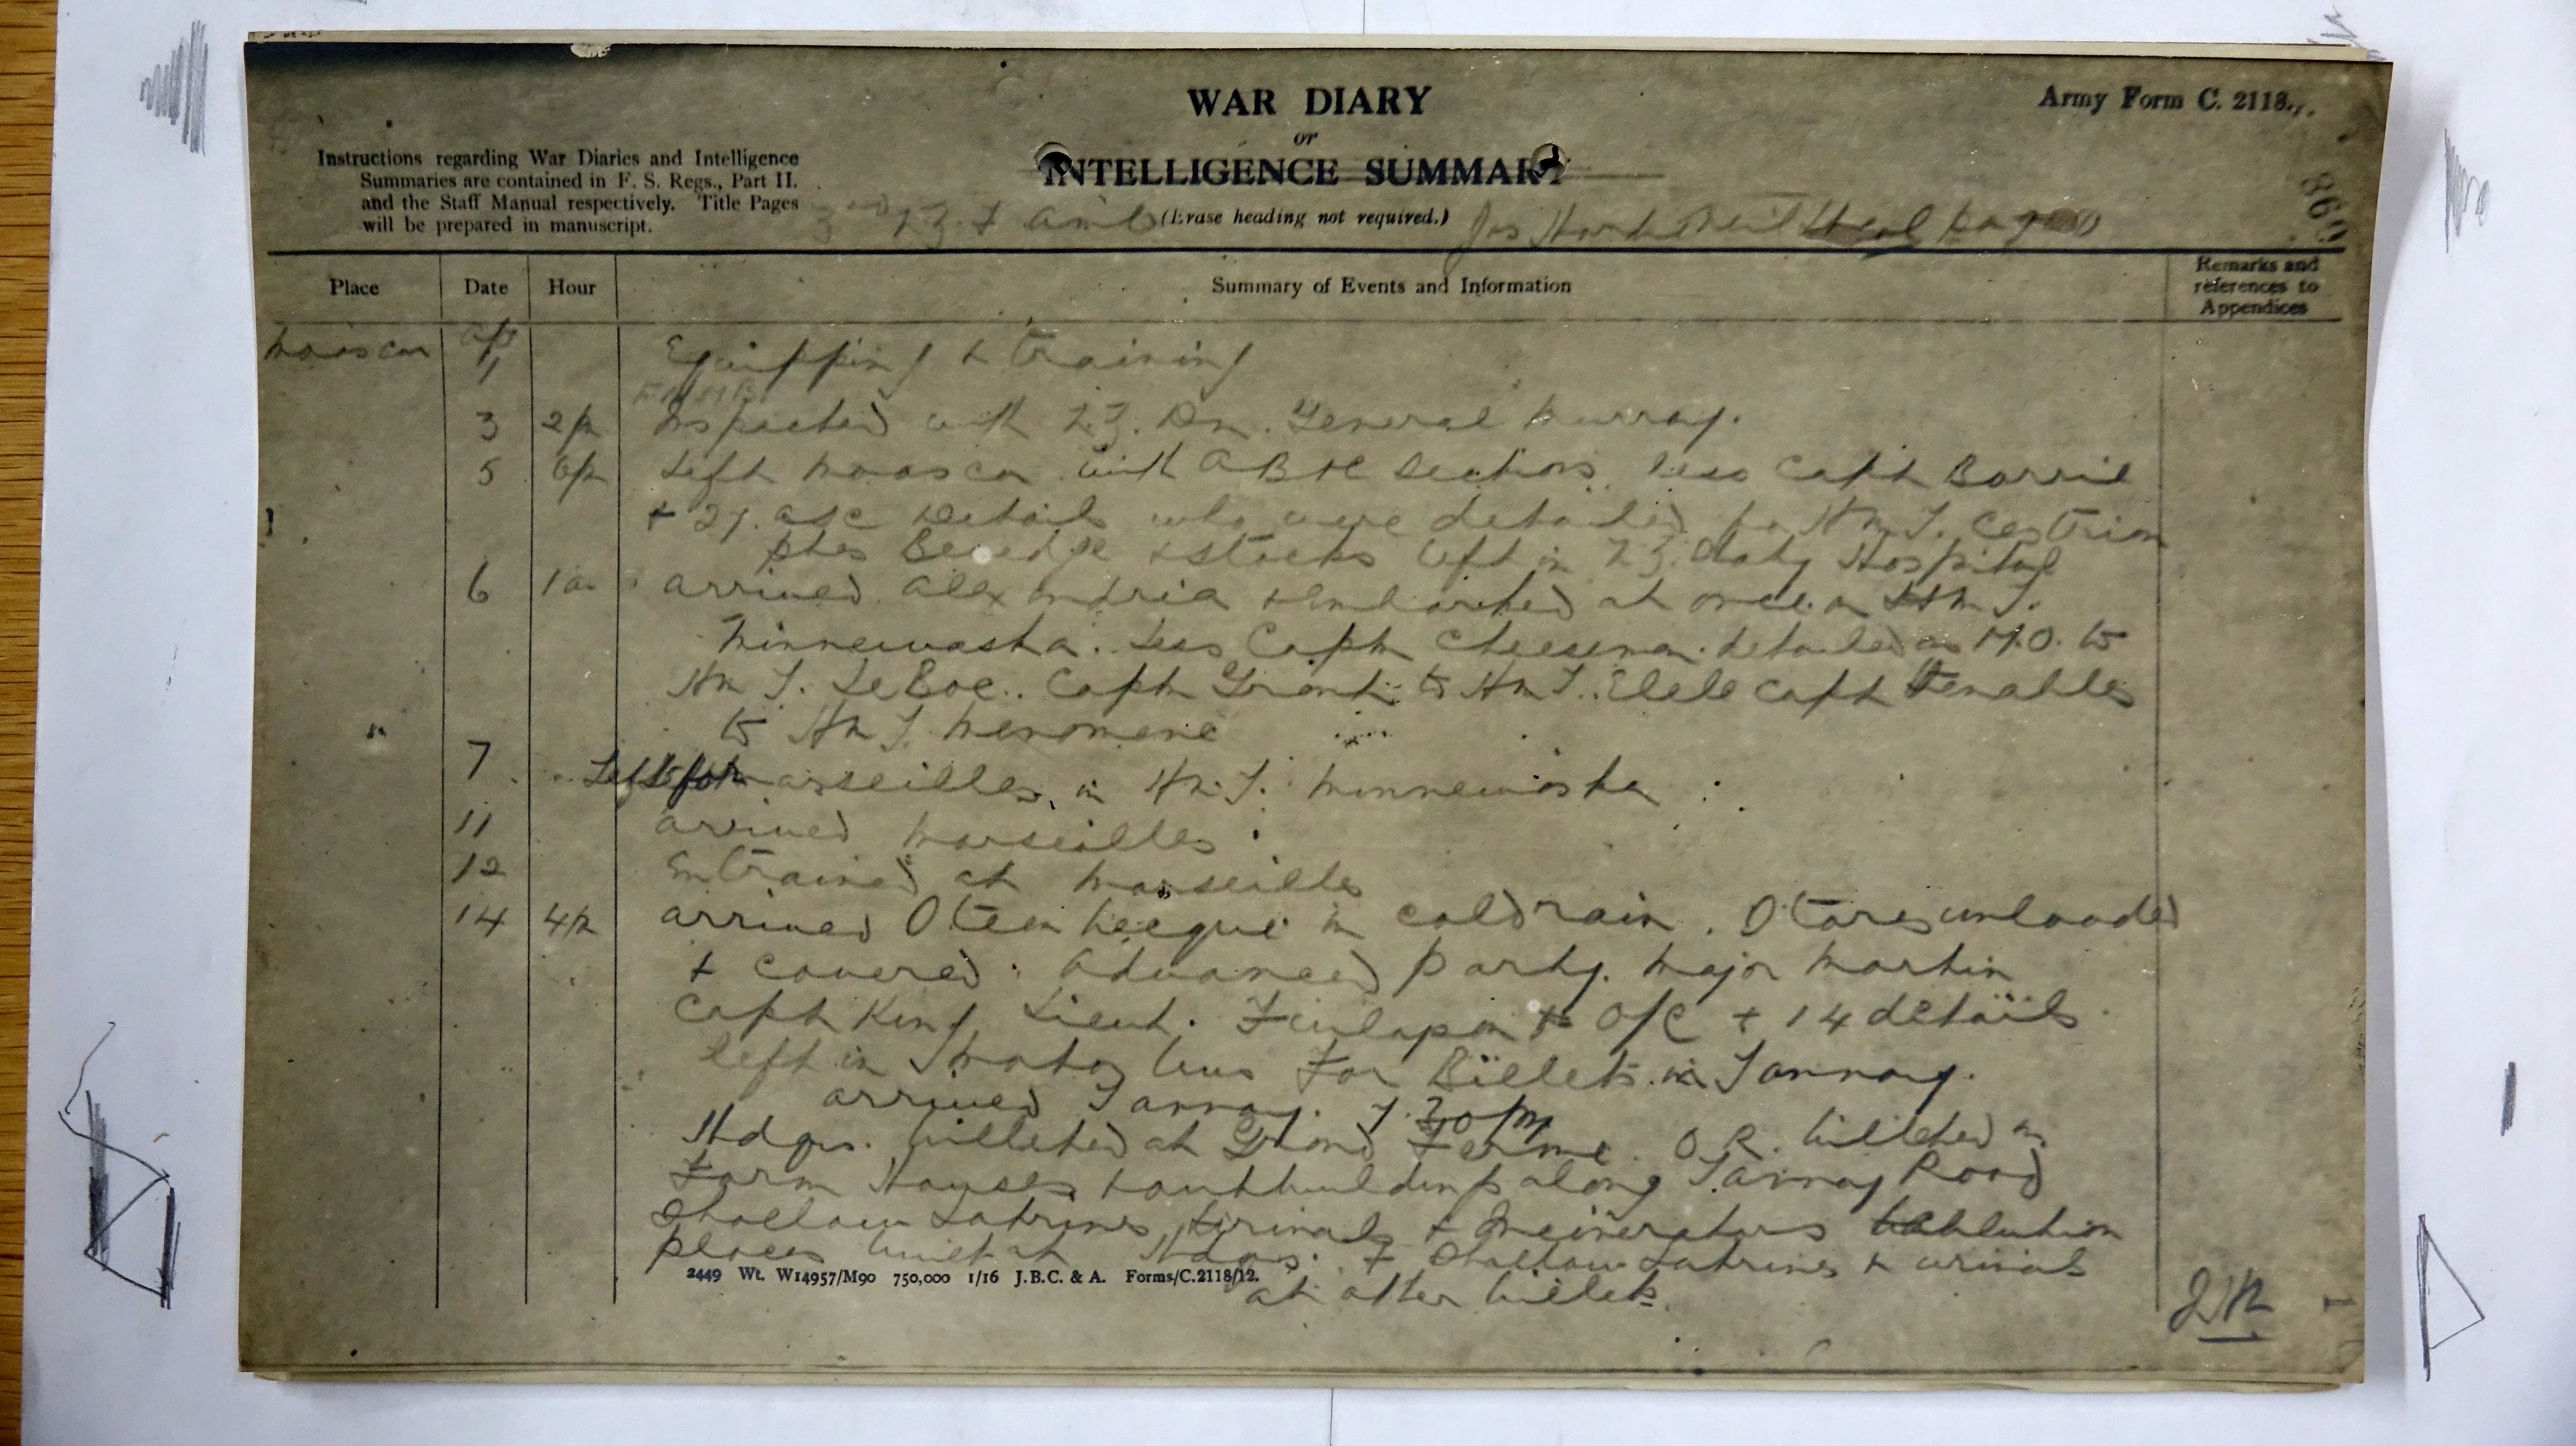 WAR DIARY
or
INTELLIGENCE SUMMARY
(Erase heading not required.)
Army Form C. 2118.
Instructions regarding War Diaries and Intelligence
Summaries are contained in F. S. Regs., Part II.
and the Staff Manual respectively. Title Pages
will be prepared in manuscript.
3rd N.Z. F Amb
860
Place Date Hour Summary of Events and Information Remarks and references to Appendices
Moascar Apr 1 Equipping & training
3 2pm Inspected with N.Z. Dn. General Murray.
5 6pm Left Moascar with A B & C Sections. less Capt Barrie
+ 27 ASC Details who were detailed to H M T. Cestrian
Ptes & Stocks left in N.Z. Staty Hospital
6 1am arrived Alexandria & embarked at once on H M T.
Minnewaska. Less Capt Cheeseman detailed as M.O. to
H M T. Le Boe.. Capt Grant to H M T.. Elele Capt Venables
to H M T. Menomene
7 Left for Marseilles in H.M.T. Minnewaska
11 arrived Marseilles
12 Entrained at Marseilles
14 4pm arrived Steenbecque in cold rain. Stores unloaded
+ covered. Advanced party. Major Martin
Capt King, Lieut. Finlayson O/C + 14 details
left in Motor bus For Billets in Tannay.
arrived Tannay. 7.30 pm
Hdqrs. billeted at Grand Ferme. O.R. billeted in
Farm Houses & outbuildings along Tannay Road
Shallow Latrines, Urinals + Incinerators ablution
places built at Hdqrs. + Shallow Latrines & urinals
at other billets.
2449 Wt. W14957/M90 750,000 1/16 J.B.C. & A. Forms/C.2118/12.